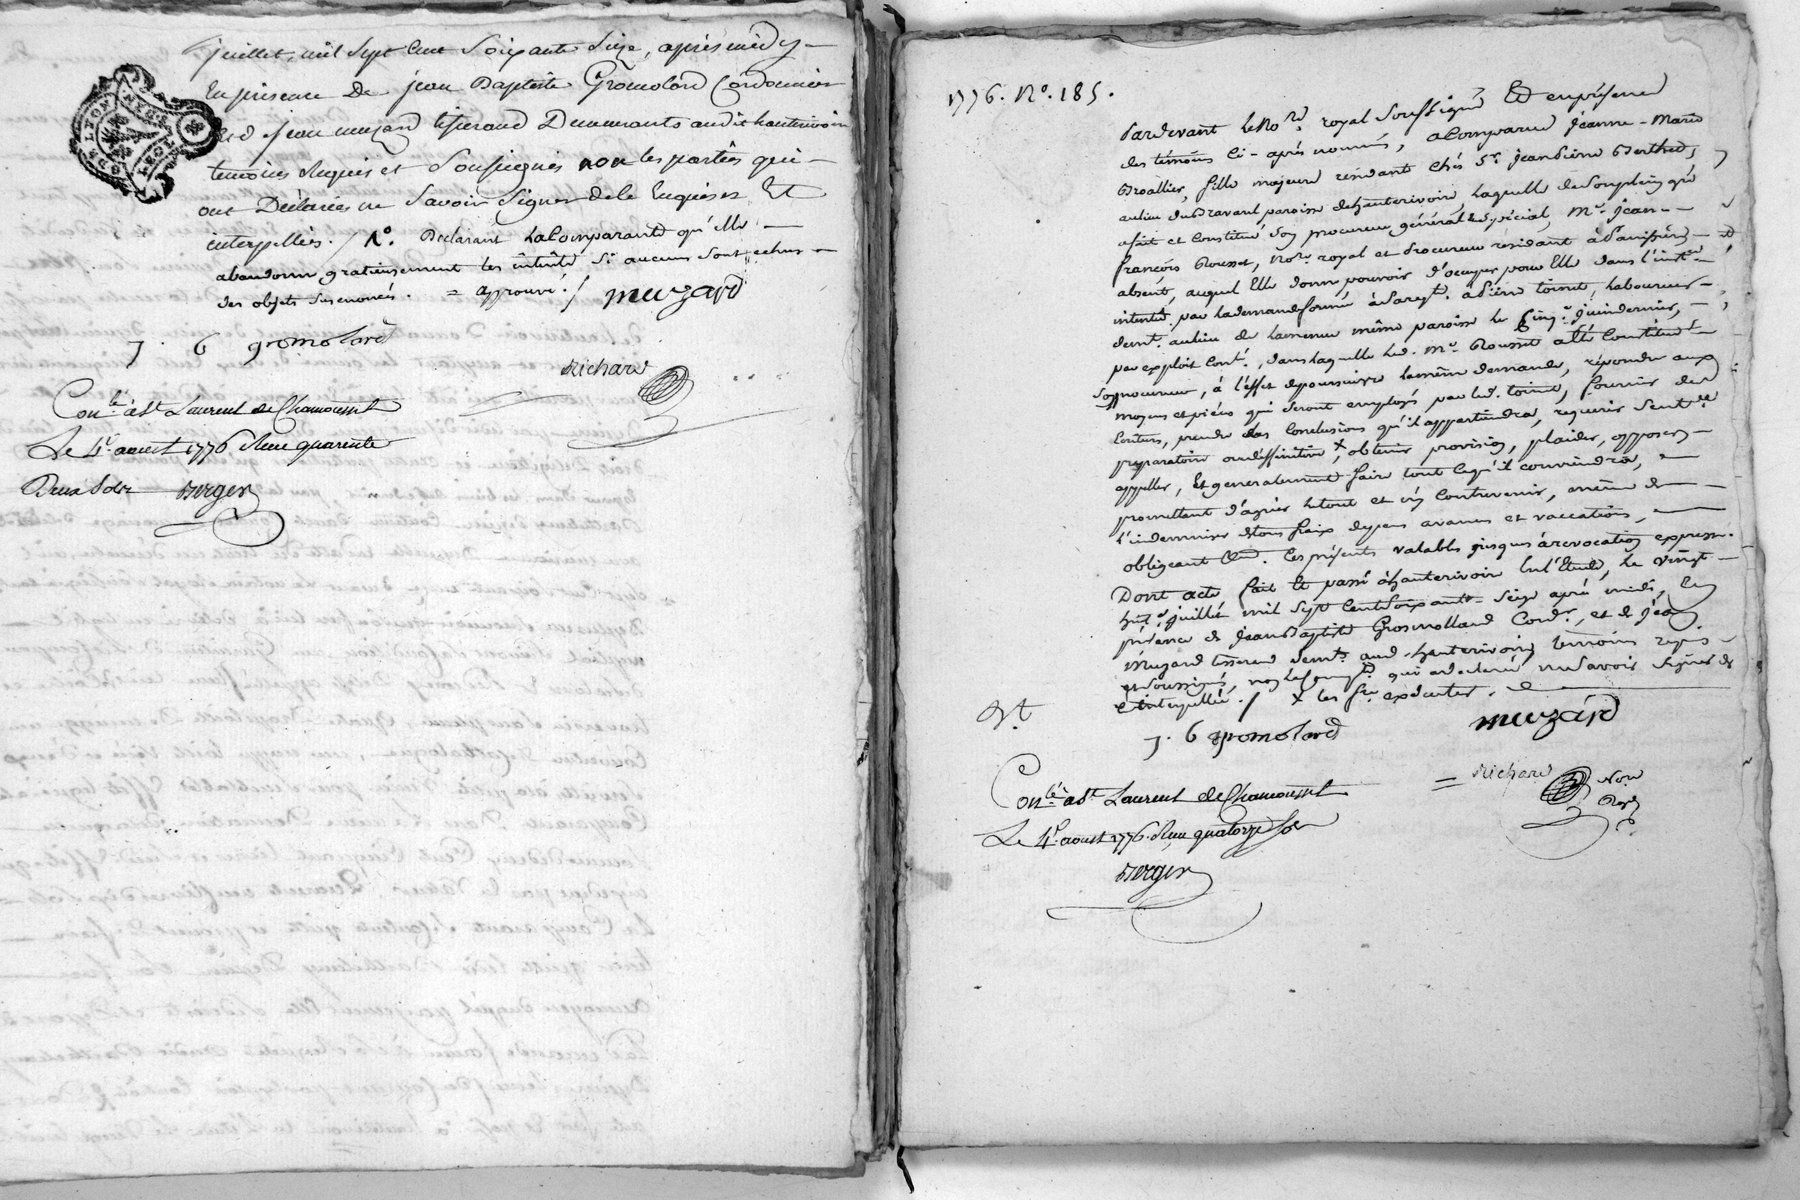 juillet, mil sept cent soixante Seize, après midy
En presence De jean Baptiste Gromolard Cordonnier
et de jean muzard tisserand Demeurants audit hauterivoire
temoins Requis et soussignés non les parties qui
ont Déclarées ne Savoir Signer de ce Enquises Et
interpellées. / No. Declarant la Comparante qu'elle
abandonne gratieusement les intérêts si aucuns sont echus
des objets susenoncés. = approuvé. / muzard
J. B gromolard
Richard
Conlé à St Laurent de Chamousset
Le 4. aoust 1776 Reçu quarente
Deux sols Berger
DE LYON
1776. No. 185.
Pardevant le Nore. royal Soussigné Et en présence
des témoins ci-après nommés, a Comparue Jeanne-Marie
Broallier, fille majeure residante chés Sr. Jean Pierre Berthet,
au lieu du Bravant paroisse d'hauterivoire, laquelle de son plein gré
a fait et Constitué son procureur général & spécial, Me. Jean
françois Rousset, Nore. royal et Procureur résidant à
absent, auquel Elle donne pouvoir d'occuper pour Elle dans l'instance
intenté par la demande formée à sa reqte. à Pierre toinet, laboureur
demt. au lieu de lamenue même paroisse le cinq. juin dernier,
par exploit Conlé., dans laquelle led. Me. Rousset a été Constitué
Son procureur, à l'effet de poursuivre la même demande, répondre aux
moyens et pièces qui seront employés par led. toinet, fournir de
Ecritures, prendre des Conclusions qu'il appartiendra, requerir sentce
preparatoire ou deffinitive x, obtenir provision, plaider, opposer
appeller, Et generalement faire tout ce qu'il conviendra,
promettant d'agréer le tout et n'y Contrevenir, même de
l'indemniser de tous fraix depens avances et vaccations,
obligeant &ca. Ces présentes valables jusques à revocation expresse.
Dont acte fait Et passé à hauterivoire En l'Etude, le vingt
huit juillet mil sept Cent soixante-seize après midi, En
présence de Jean Baptiste Gromolland Cordr. et de Jean
Muzard tisserand demts. aud. hauterivoire témoins requis
et soussignés, non la compte. qui a declaré ne savoir signer de
Enterpellée. / x les fre executer.
J. B gromolard
muzard
Conlé à St Laurent de Chamousset
Le 4. aoust 1776. Reçu quatorze sols
Berger
= Richard Nore
Royal